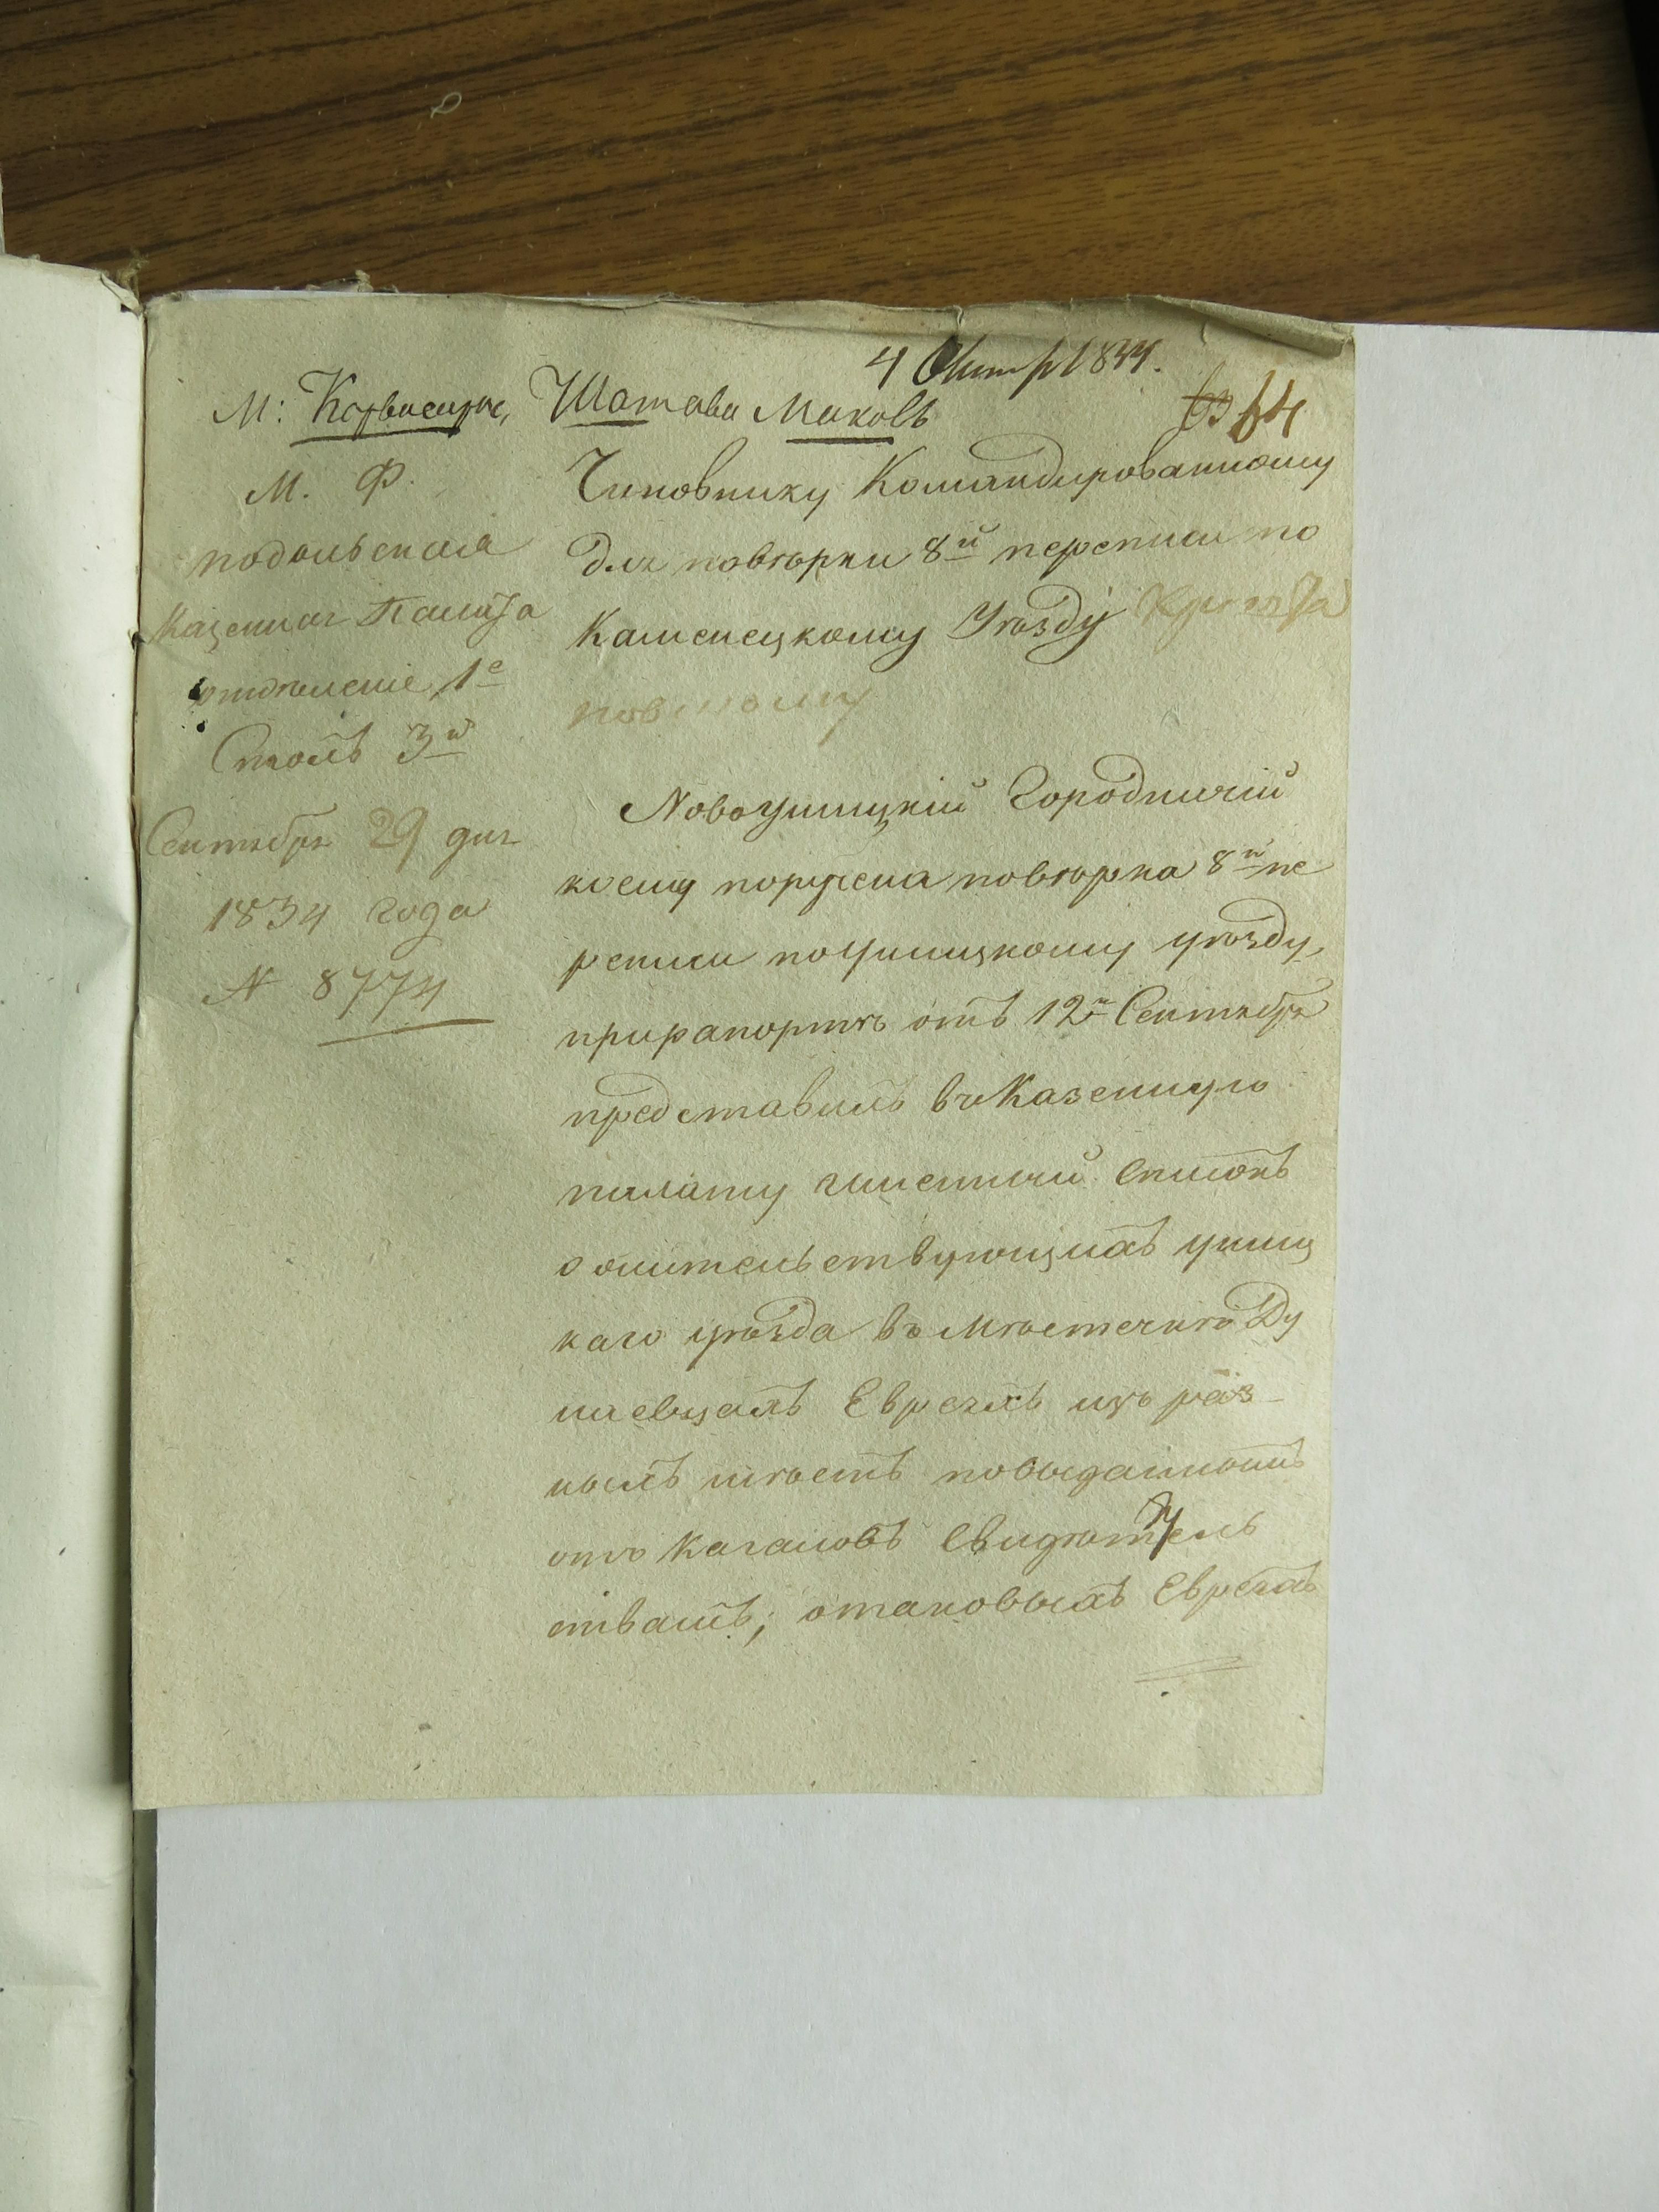 4 Октяр 1834.
М: Карвасары, Шатава Маковъ
64
М. Ф.
подольская
Казенная Палата
отдѣленіе 1е
Столъ 3й
Сентября 29 дня
1834 года
N 8774
Чиновнику Командированному
для повѣрки 8й переписи по
Каменецкому Уѣзду
Новоушицкій Городничій
коему поручена повѣрка 8й пе
реписи по Ушицкому уѣзду,
при рапортѣ отъ 12го Сентября
представилъ въ Казенную
палату именный списокъ
о жительствующихъ ушиц
каго уѣзда въ Мѣстечкѣ Ду
наевцахъ Евреяхъ изъ раз-
ныхъ мѣстъ по выданнымъ
отъ Кагаловъ свидѣтель
ствамъ; о таковыхъ Евреяхъ